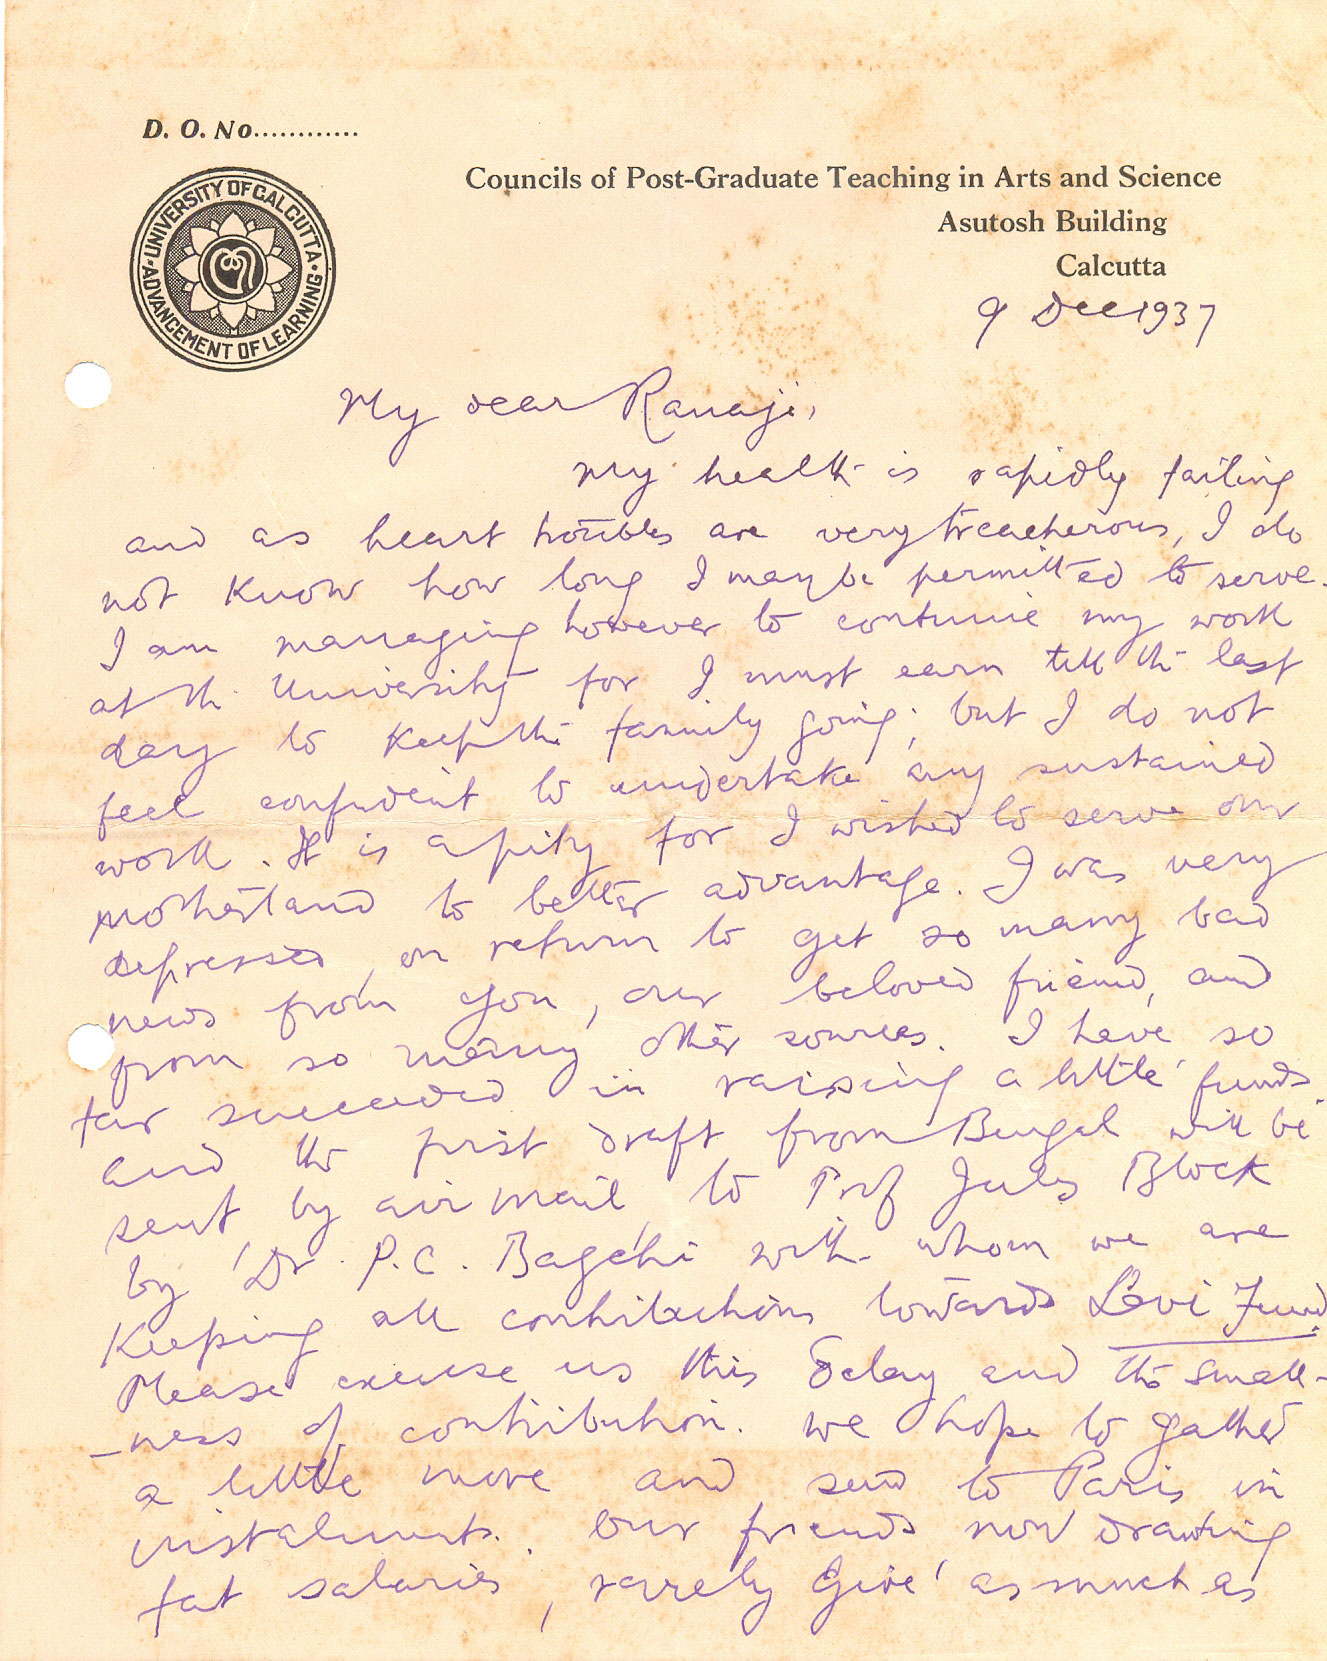 D. O. No............
UNIVERSITY OF CALCUTTA
ADVANCEMENT OF LEARNING
Councils of Post-Graduate Teaching in Arts and Science
Asutosh Building
Calcutta
9 Dec 1937
My dear Ranaji,
My health is rapidly failing
and as heart troubles are very treacherous, I do
not know how long I may be permitted to serve.
I am managing however to continue my work
at the University for I must earn till the last
day to keep the family going; but I do not
feel confident to undertake any sustained
work. It is a pity for I wished to serve our
motherland to better advantage. I was very
depressed, on return to get so many bad
news from you, our beloved friend, and
from so many other sources. I have so
far succeeded in raising a little funds
and the first draft from Bengal will be
sent by air mail, to Prof Jules Block
by Dr. P.C. Bagchi with whom we are
keeping all contributions towards Levi Fund.
Please excuse us this delay and the small-
-ness of contribution. We hope to gather
a little more and send to Paris in
instalments. Our friends now drawing
fat salaries, rarely give as much as